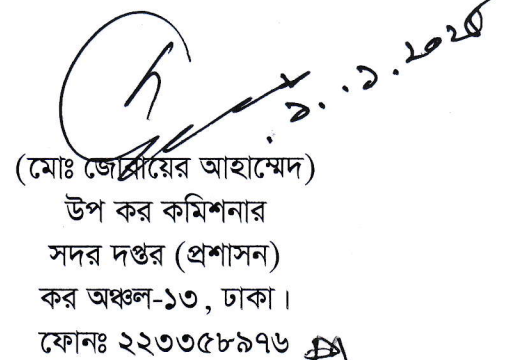 (মোঃ জোবায়ের আহাম্মেদ)
উপ কর কমিশনার
সদর দপ্তর (প্রশাসন)
কর অঞ্চল-১৩, ঢাকা।
ফোনঃ ২২৩৩৫৮৯৭৬